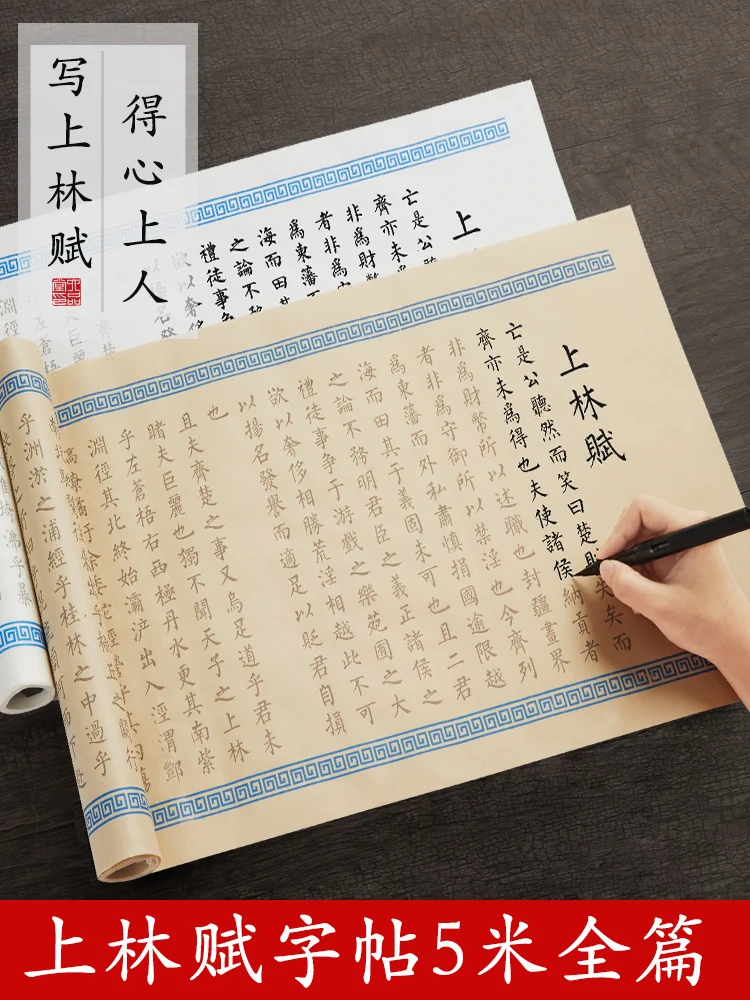 写上林赋
得心上人
上
亡是公
齊亦未爲
非爲財幣
者非爲守
爲東藩
海而田其
之論不務
禮徒事
欲以奢侈
上林賦
亡是公聽然而笑曰楚則失矣而
齊亦未爲得也夫使諸侯納貢者
非爲財幣所以述職也封疆畫界
者非爲守御所以禁淫也今齊列
爲東藩而外私肅慎捐國逾限越
海而田其于義固未可也且二君
之論不務明君臣之義正諸侯之
禮徒事争于游戲之樂苑囿之大
欲以奢侈相勝荒淫相越此不可
以揚名發譽而適足以貶君自損
也
且夫齊楚之事又烏足道乎君未
睹夫巨麗也獨不聞天子之上林
乎左蒼梧右西極丹水更其南紫
淵徑其北終始灞浐出入涇渭酆
乎洲淤之浦經乎桂林之中過乎
上林赋字帖5米全篇